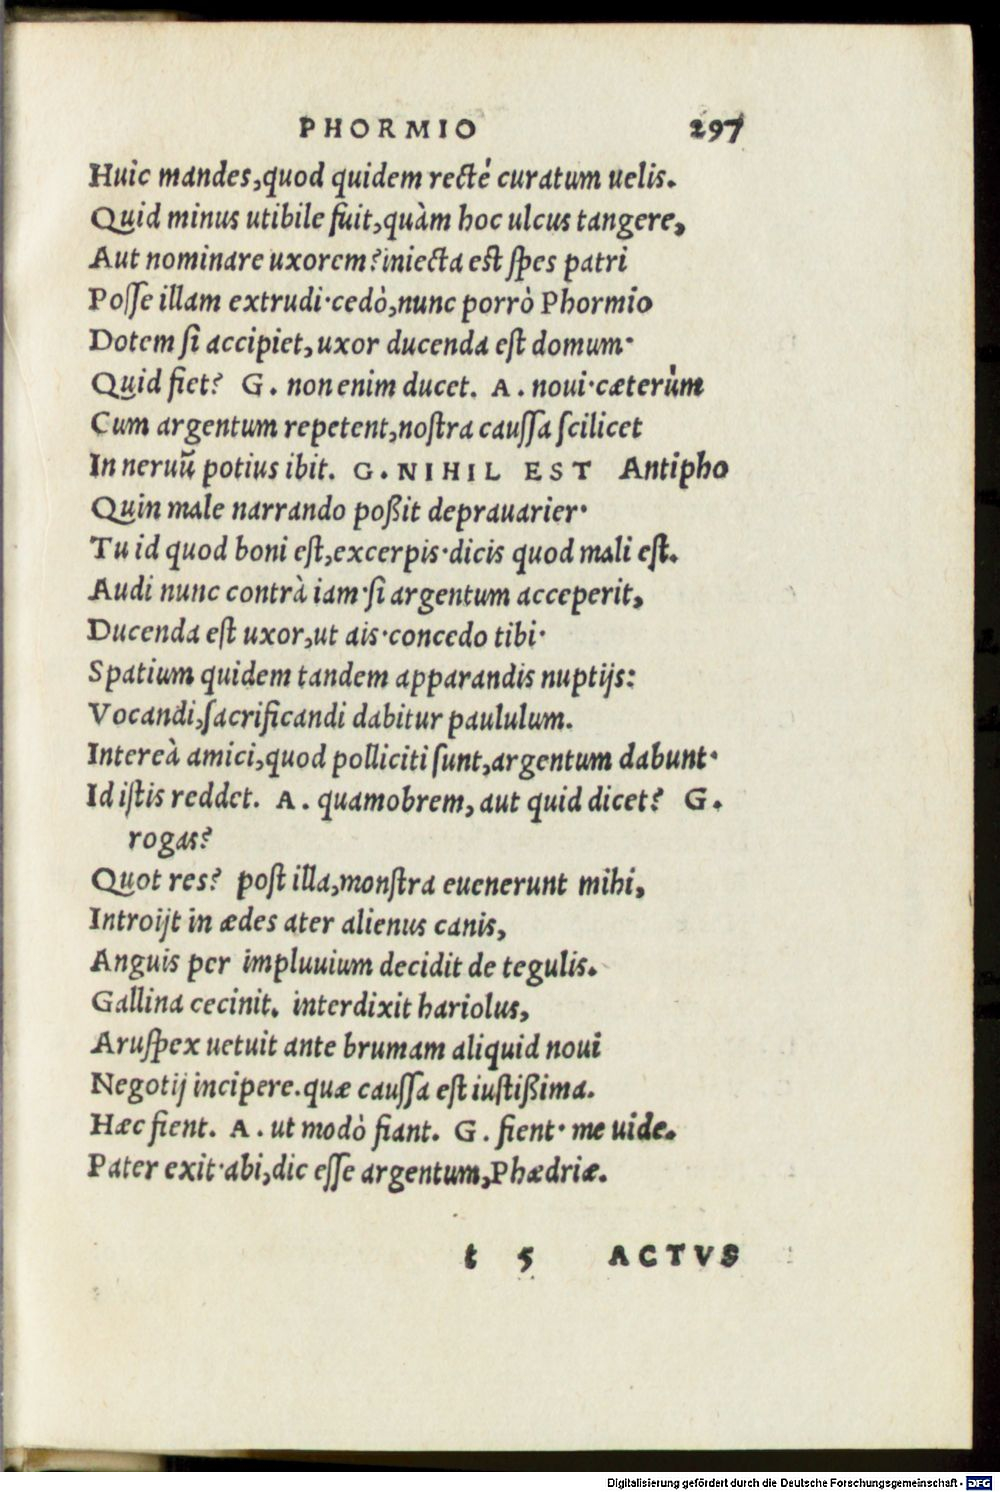 PHORMIO 297
Huic mandes,quod quidem recté curatum uelis.
Quid minus utibile fuit,quàm hoc ulcus tangere,
Aut nominare uxorem?iniecta est spes patri
Posse illam extrudi·cedò,nunc porrò Phormio
Dotem si accipiet,uxor ducenda est domum·
Quid fiet? G. non enim ducet. A. noui·cæterùm
Cum argentum repetent,nostra caussa scilicet
In neruū potius ibit. G. NIHIL EST Antipho
Quin male narrando poßit deprauarier·
Tu id quod boni est,excerpis·dicis quod mali est.
Audi nunc contrà iam·si argentum acceperit,
Ducenda est uxor,ut ais·concedo tibi·
Spatium quidem tandem apparandis nuptijs:
Vocandi,sacrificandi dabitur paululum.
Intereà amici,quod polliciti sunt,argentum dabunt·
Id istis reddet. A. quamobrem, aut quid dicet? G.
rogas?
Quot res? post illa,monstra euenerunt mihi,
Introijt in ædes ater alienus canis,
Anguis per impluuium decidit de tegulis.
Gallina cecinit. interdixit hariolus,
Aruspex uetuit ante brumam aliquid noui
Negotij incipere.quæ caussa est iustißima.
Hæc fient. A. ut modò fiant. G. fient· me uide.
Pater exit·abi,dic esse argentum,Phædriæ.
t 5 ACTVS
Digitalisierung gefördert durch die Deutsche Forschungsgemeinschaft - DFG